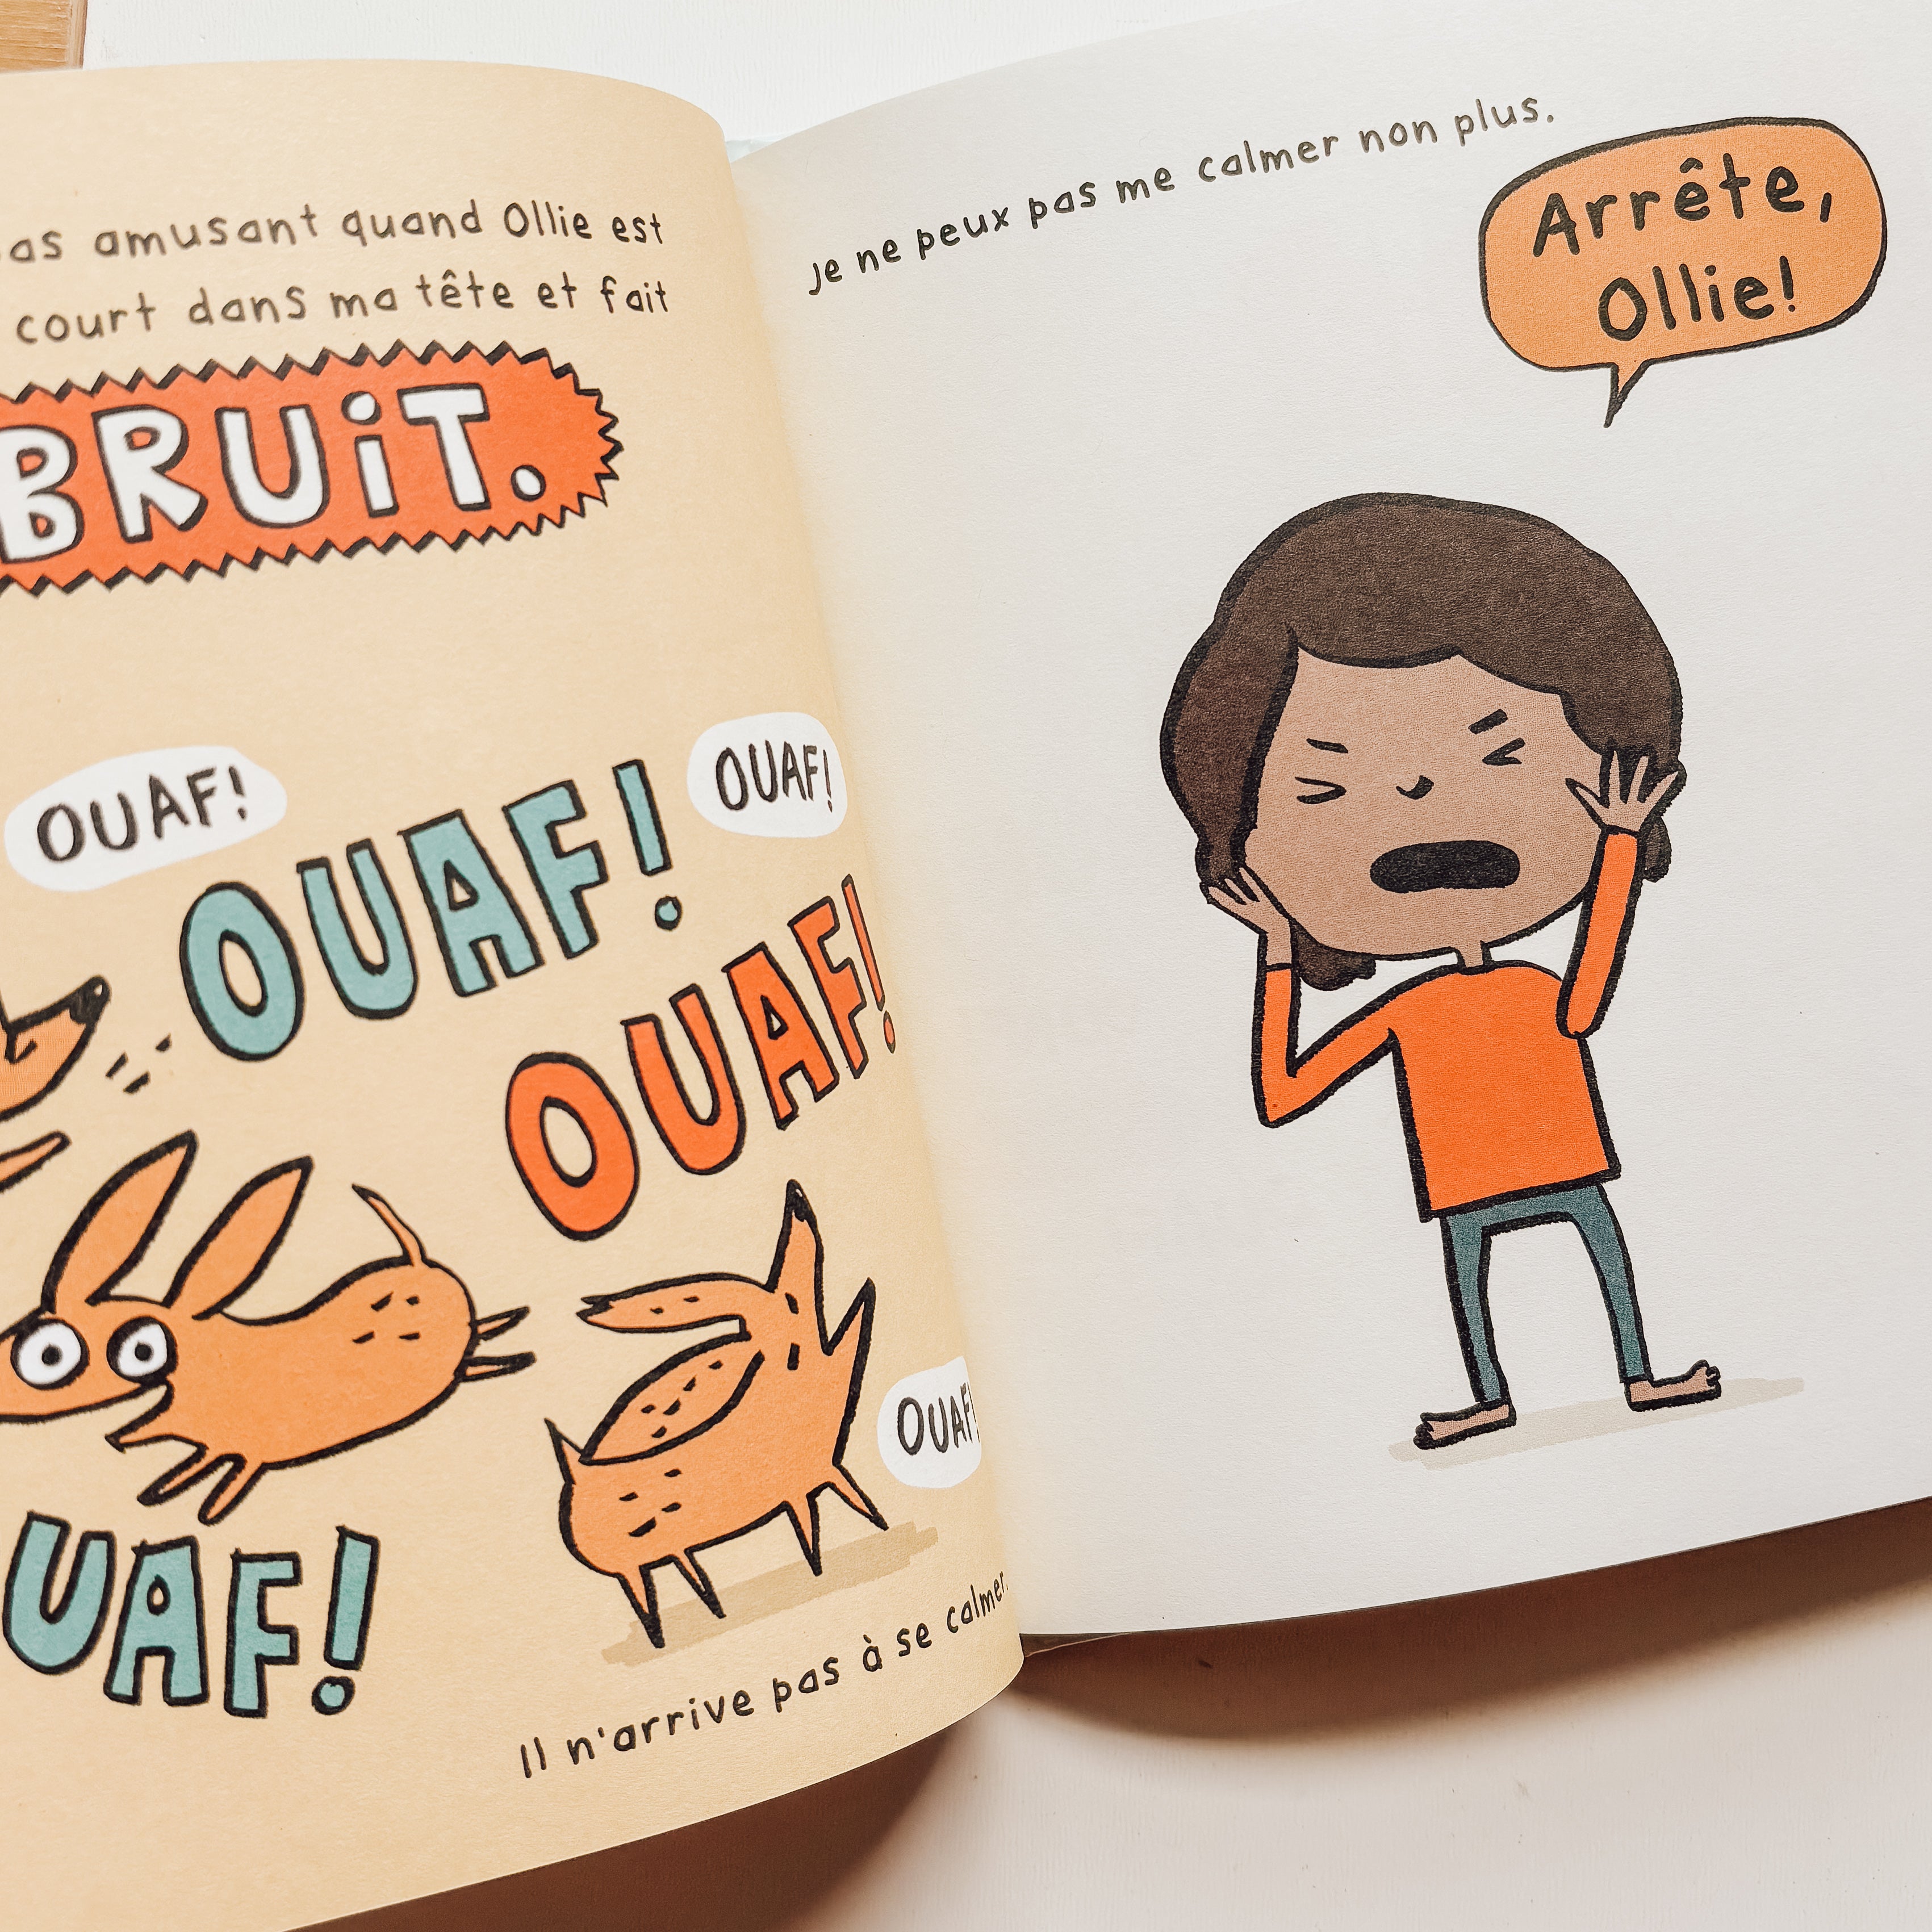 amusant quand Ollie est
court dans ma tête et fait
BRUIT.
OUAF!
OUAF!
OUAF!
OUAF!
OUAF!
UAF!
Il n'arrive pas à se calmer.
Je ne peux pas me calmer non plus.
Arrête,
Ollie!